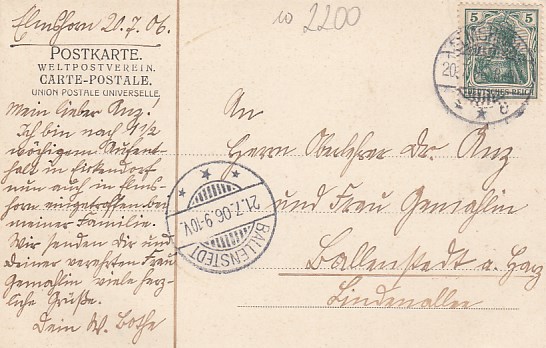 Elmshorn 20.7.06.
10 2200
POSTKARTE.
WELTPOSTVEREIN.
CARTE-POSTALE.
UNION POSTALE UNIVERSELLE.
Mein lieber Anz!
Ich bin nach 1 1/2
wöchigem Aufent
halt in Eickendorf
nun auch in Elms-
horn eingetroffen bei
meiner Familie.
Wir senden dir und
deiner verehrten Frau
Gemahlin viele herz-
liche Grüße.
Dein W. Bothe
5 5
DEUTSCHES REICH
20.
An
Herrn Oberlehrer Dr. Anz
und Frau Gemahlin
Ballenstedt a. Harz
Lindenallee
21.7.06.9-10V.
BALLENSTEDT